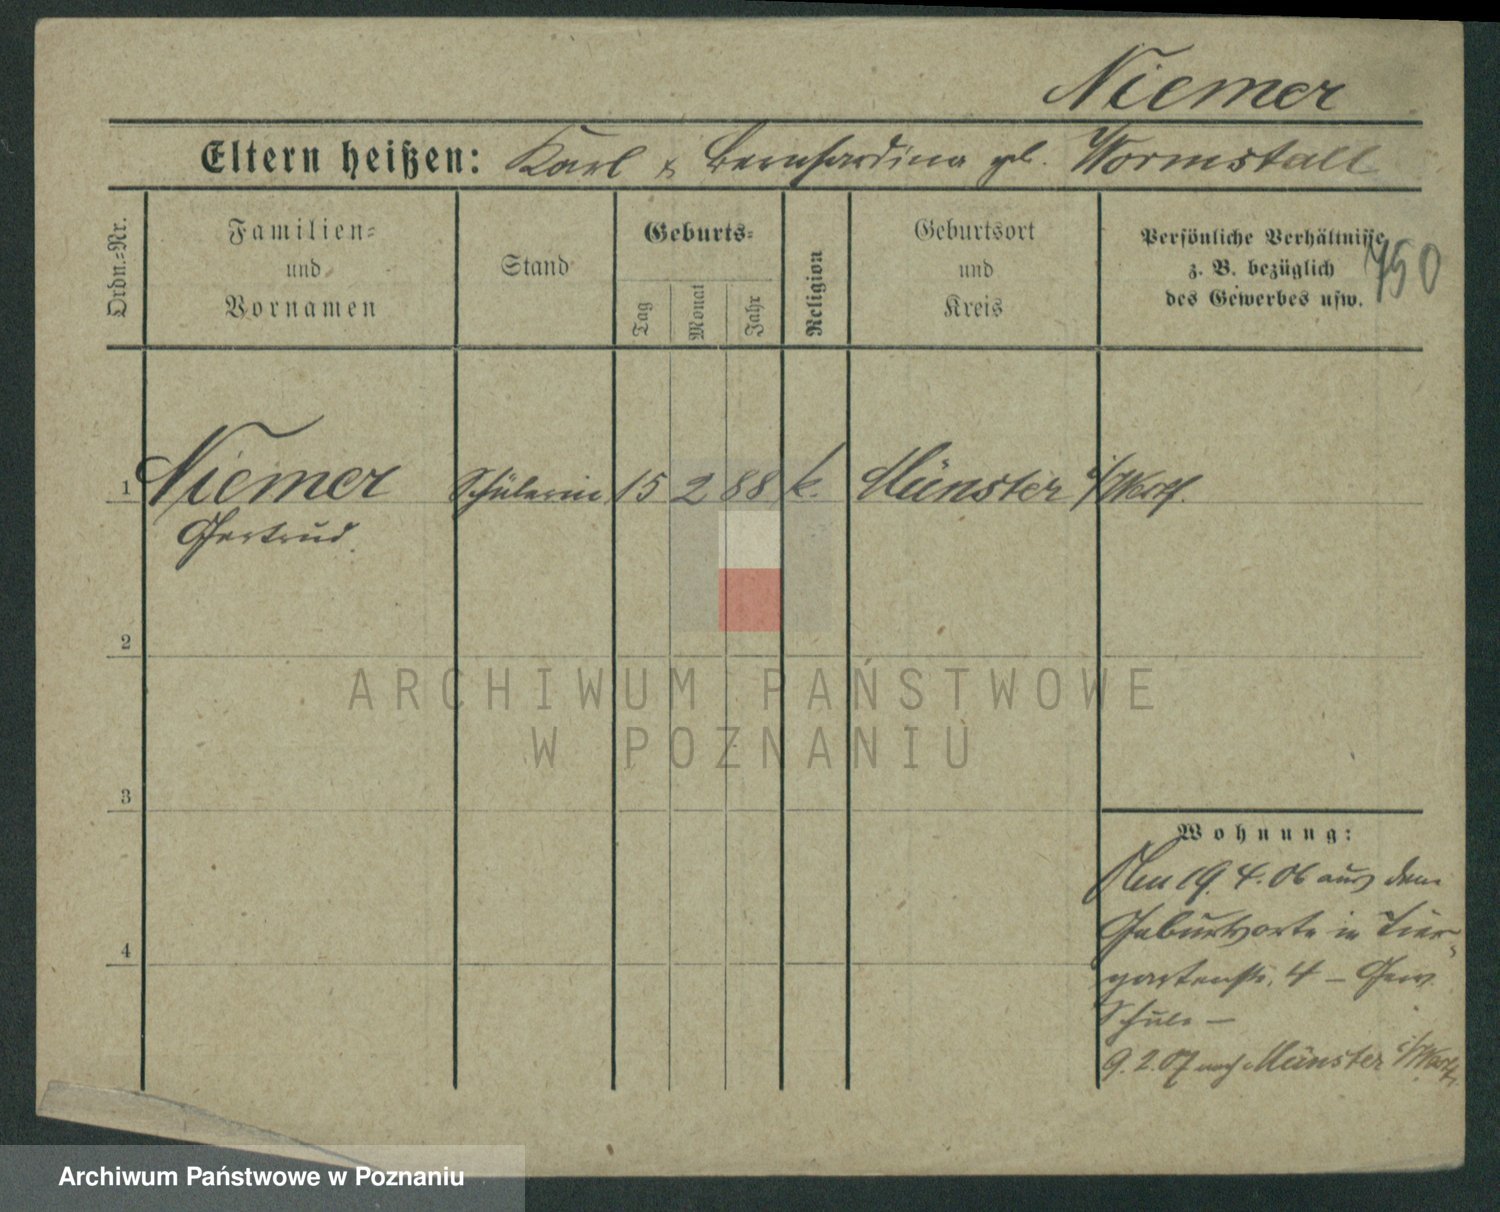 Niemer
Eltern heißen: Karl & Bernhardina geb. Wormstall
Ordn.-Nr.
Familien-
und
Vornamen
Stand
Geburts-
Tag
Monat
Jahr
Religion
Geburtsort
und
Kreis
Persönliche Verhältnisse
z. B. bezüglich
des Gewerbes usw.
750
1 Niemer Schülerin 15 2 88 k. Münster i/Westf.
Gertrud
2
ARCHIWUM PAŃSTWOWE
W POZNANIU
3
Wohnung:
Am 19.4.06 aus dem
Geburtsorte in Tier-
4
gartenstr. 4 – Gew.
Schule –
9.2.07 nach Münster i/Westf.
Archiwum Państwowe w Poznaniu